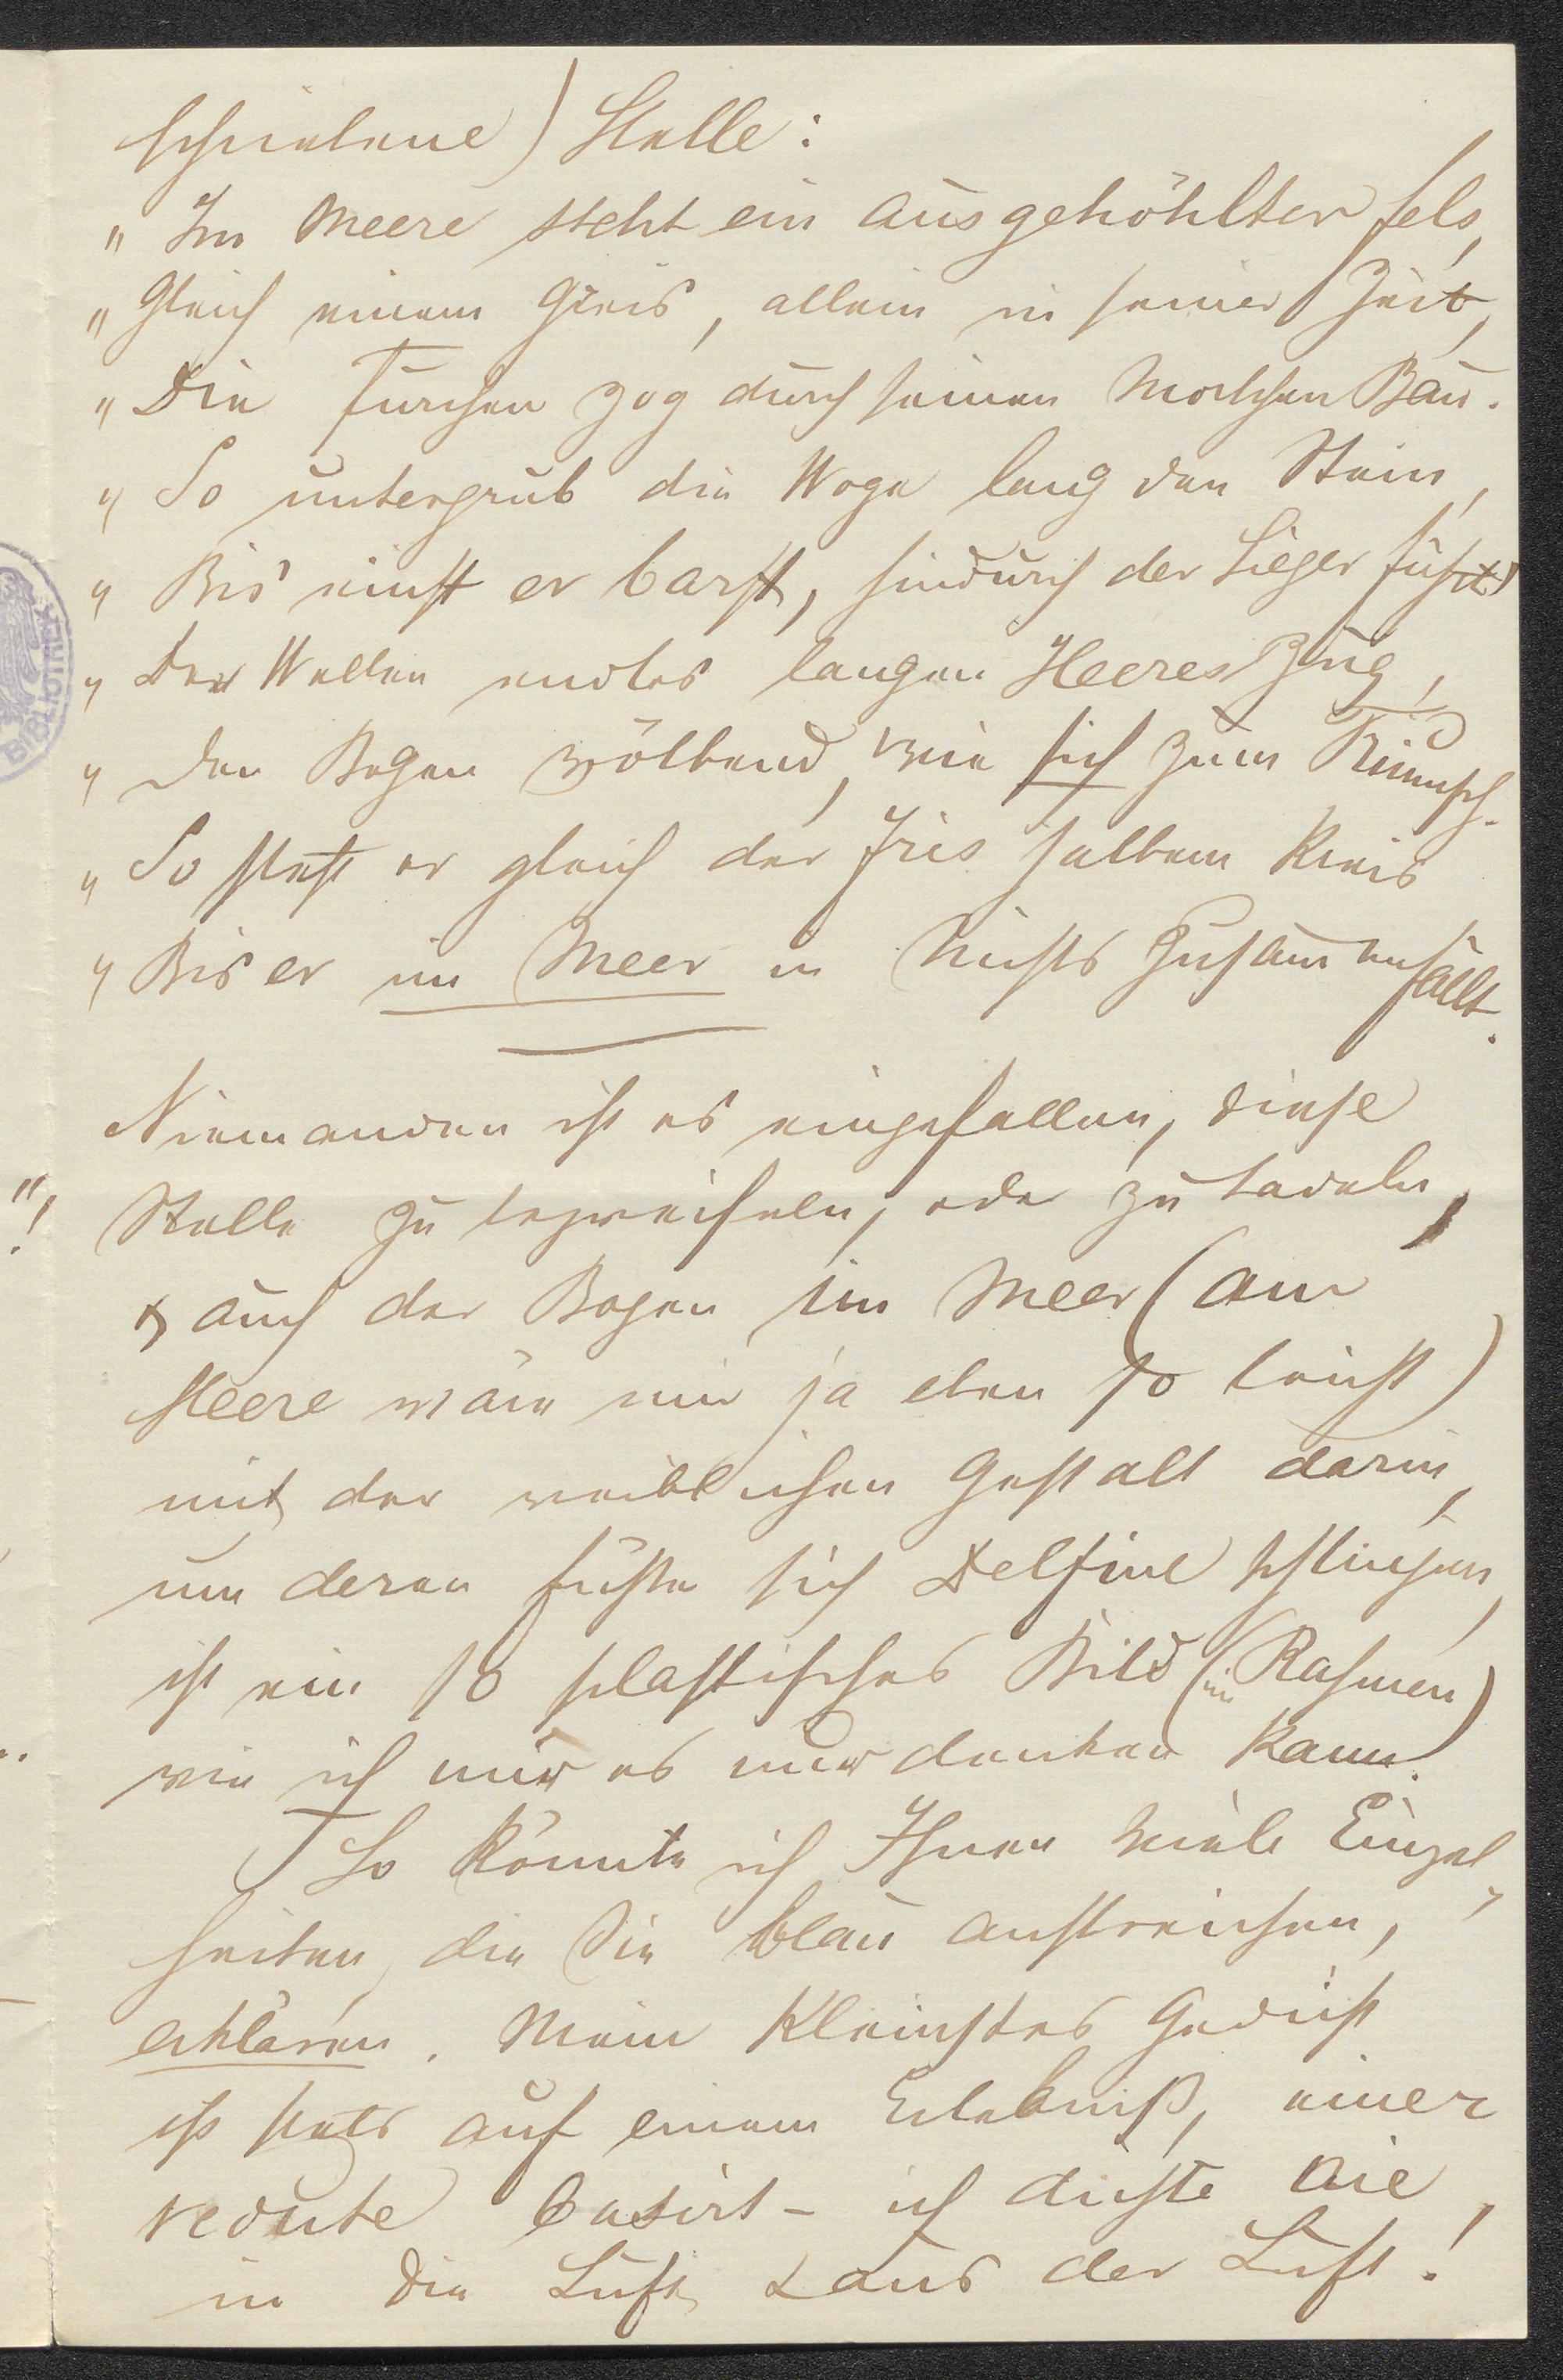 schriebene) Stelle:
„Im Meere steht ein ausgehöhlter Fels,
„Gleich einem Greis, allein in seiner Zeit,
„Die Furchen zog durch seinen morschen Bau.
„So untergrub die Woge lang den Stein,
„Bis einst er barst, hindurch der Sieger führt
„Der Wellen endlos langen Heereszug,
„Den Bogen wölbend, wie sich zum Triumph.
„So steht er gleich der Iris halbem Kreis
„Bis er im Meer in Nichts zusammenfällt.
Niemanden ist es eingefallen, diese
Stelle zu bezweifeln, oder zu tadeln,
& auch der Bogen im Meer (am
Meere wäre mir ja eben so leicht)
mit der weiblichen Gestalt darin,
um deren Füße sich Delfine schlingen,
ist ein so plastisches Bild (im Rahmen)
wie ich mir es nur denken kann.
So könnte ich Ihnen viele Einzel-
heiten, die Sie blau anstreichen,
erklären. Mein kleinstes Gedicht
ist stets auf einem Erlebniß, einer
vedute basirt – ich dichte nie
in die Luft & aus der Luft!
BIBLIOTHEK